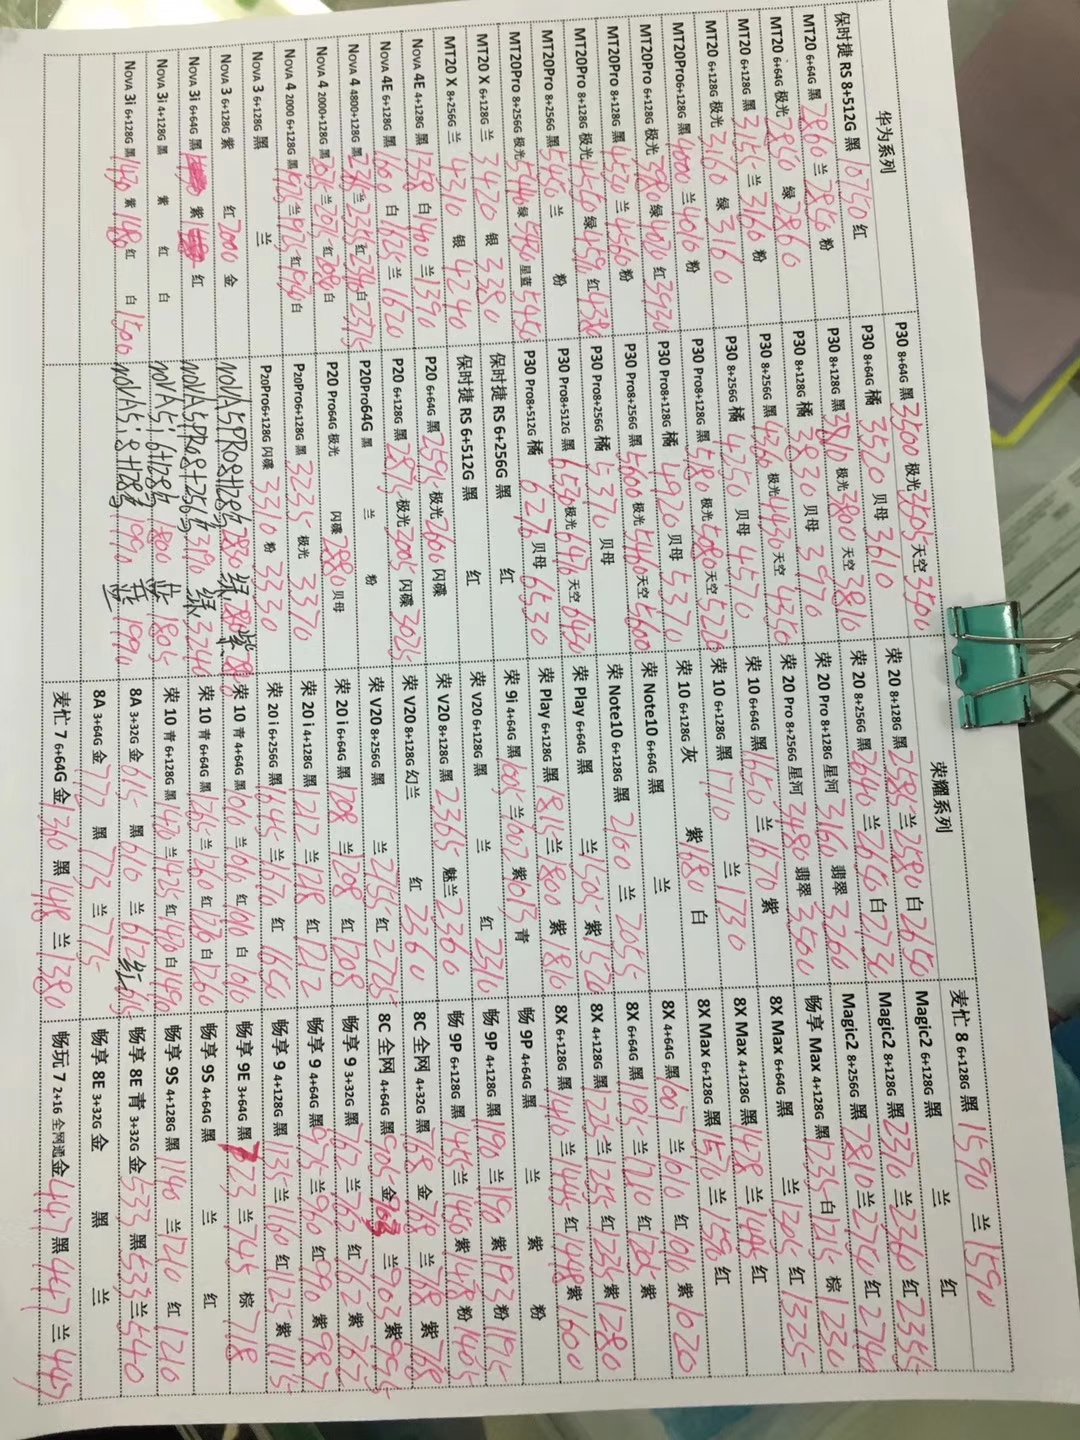 华为系列
保时捷 RS 8+512G 黑 10750 红
MT20 6+64G 黑 2860 兰 2856 粉
MT20 6+64G 极光 2860 绿 2860
MT20 6+128G 黑 3155 兰 3160 粉
MT20 6+128G 极光 3160 绿 3160
MT20Pro6+128G 黑 4000 兰 4010 粉
MT20Pro 6+128G 极光 3980 绿 4000 红 3930
MT20Pro 8+128G 黑 4520 兰 4560 粉
MT20Pro 8+128G 极光 4540 绿 4590 红 4380
MT20Pro 8+256G 黑 5450 兰 粉
MT20Pro 8+256G 极光 绿 星蓝 5450
MT20 X 6+128G 兰 3420 银 3380
MT20 X 8+256G 兰 4310 银 4240
Nova 4E 4+128G 黑 1358 白 1400 兰 1390
Nova 4E 6+128G 黑 1600 白 1625 兰 1620
Nova 4 4800+128G 黑 兰 红 白 2375
Nova 4 2000+128G 黑 兰 红 白
Nova 4 2000 6+128G 黑 兰 1925 红 白
Nova 3 6+128G 黑 兰
Nova 3 6+128G 紫 红 2000 金
Nova 3i 6+64G 黑 紫 红
Nova 3i 4+128G 黑 紫 红 白
Nova 3i 6+128G 黑 1430 紫 红 白 1500
P30 8+64G 黑 3500 极光 3505 天空 3500
P30 8+64G 橘 3520 贝母 3610
P30 8+128G 黑 3810 极光 3800 天空 3810
P30 8+128G 橘 3830 贝母 3970
P30 8+256G 黑 极光 4430 天空 4350
P30 8+256G 橘 4250 贝母 4570
P30 Pro8+128G 黑 5180 极光 5080 天空 5220
P30 Pro8+128G 橘 4920 贝母 5370
P30 Pro8+256G 黑 5600 极光 5460 天空 5600
P30 Pro8+256G 橘 5370 贝母
P30 Pro8+512G 黑 极光 天空 6430
P30 Pro8+512G 橘 6270 贝母 6530
保时捷 RS 6+256G 黑 红
保时捷 RS 6+512G 黑 红
P20 6+64G 黑 2595 极光 2600 闪碟
P20 6+128G 黑 2875 极光 闪碟 3025
P20Pro64G 黑 兰 粉
P20 Pro64G 极光 闪碟 2880 贝母
P20Pro6+128G 黑 3235 极光 3370
P20Pro6+128G 闪碟 3310 粉 3330
noVA5PRo8+128G 绿 紫
noVA5PRo8+256G 绿 3240
noVA5i 6+128G 1800 蓝 1805
noVA5i 8+128G 1990 蓝 1990
荣耀系列
荣 20 8+128G 黑 2585 兰 2580 白 2650
荣 20 8+256G 黑 2640 兰 2660 白 2730
荣 20 Pro 8+128G 星河 3160 翡翠 3260
荣 20 Pro 8+256G 星河 3480 翡翠 3500
荣 10 6+64G 黑 1650 兰 1670 紫
荣 10 6+128G 黑 1710 兰 1730
荣 10 6+128G 灰 紫 1680 白
荣 Note10 6+64G 黑 兰
荣 Note10 6+128G 黑 2100 兰 2055
荣 Play 6+64G 黑 兰 1505 紫 1520
荣 Play 6+128G 黑 1815 兰 1800 紫 1810
荣 9i 4+64G 黑 1005 兰 1002 紫 1013 青
荣 V20 6+128G 黑 兰 红 2310
荣 V20 8+128G 黑 2365 魅兰 2360
荣 V20 8+128G 幻兰 红 2360
荣 V20 8+256G 黑 兰 2755 红 2725
荣 20 i 6+64G 黑 1208 兰 1208 红 1208
荣 20 i 4+128G 黑 1212 兰 1218 红 1212
荣 20 i 6+256G 黑 1645 兰 1670 红 1650
荣 10 青 4+64G 黑 1010 兰 1010 红 1010 白 1010
荣 10 青 6+64G 黑 1265 兰 1260 红 1270 白 1260
荣 10 青 6+128G 黑 1420 兰 1425 红 1420 白 1490
8A 3+32G 金 615 黑 610 兰 612 红 615
8A 3+64G 金 777 黑 773 兰 775
麦忙 7 6+64G 金 1360 黑 1418 兰 1380
麦忙 8 6+128G 黑 1590 兰 1590
Magic2 6+128G 黑 兰 红
Magic2 8+128G 黑 2370 兰 2360 红 2355
Magic2 8+256G 黑 2810 兰 2750 红 2740
畅享 Max 4+128G 黑 1235 白 1215 棕 1230
8X Max 6+64G 黑 兰 1305 红 1325
8X Max 4+128G 黑 1428 兰 1445 红
8X Max 6+128G 黑 1570 兰 1598 红
8X 4+64G 黑 1007 兰 1010 红 1010 紫 1020
8X 6+64G 黑 1195 兰 1210 红 1225 紫
8X 4+128G 黑 1225 兰 1255 红 1235 紫 1280
8X 6+128G 黑 1410 兰 1445 红 1448 紫 1600
畅 9P 4+64G 黑 兰 紫 粉
畅 9P 4+128G 黑 1190 兰 1180 紫 1193 粉 1195
畅 9P 6+128G 黑 1455 兰 1450 紫 1478 粉 1405
8C 全网 4+32G 黑 768 金 768 兰 768 紫 768
8C 全网 4+64G 黑 905 金 903 兰 903 紫 995
畅享 9 3+32G 黑 762 兰 762 红 762 紫 762
畅享 9 4+64G 黑 975 兰 960 红 990 紫 987
畅享 9 4+128G 黑 1135 兰 1160 红 1125 紫 1115
畅享 9E 3+64G 黑 723 兰 745 棕 718
畅享 9S 4+64G 黑 兰 红
畅享 9S 4+128G 黑 1140 兰 1210 红 1210
畅享 8E 青 3+32G 金 533 黑 533 兰 540
畅享 8E 3+32G 金 黑 兰
畅玩 7 2+16 全网通 金 447 黑 447 兰 445